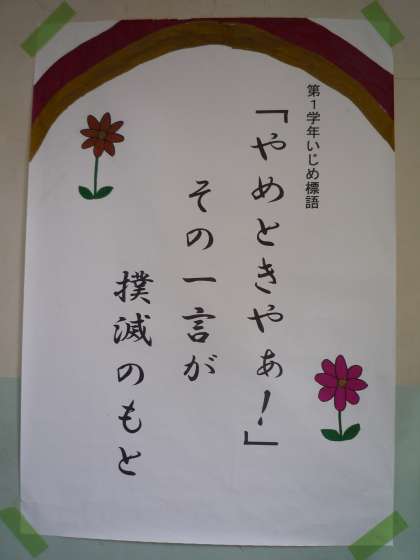 第1学年いじめ標語
「やめときやぁ!」
その一言が
撲滅のもと